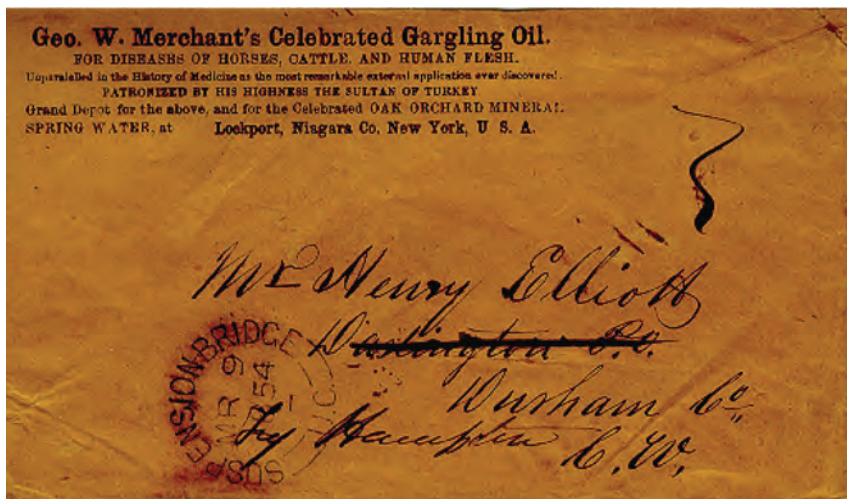 Geo. W. Merchant's Celebrated Gargling Oil.
FOR DISEASES OF HORSES, CATTLE, AND HUMAN FLESH.
Unparalelled in the History of Medicine as the most remarkable external application ever discovered.
PATRONIZED BY HIS HIGHNESS THE SULTAN OF TURKEY
Grand Depot for the above, and for the Celebrated OAK ORCHARD MINERAL
SPRING WATER, at Lockport, Niagara Co. New York, U. S. A.
Mr Henry Elliott
Darlington P.O.
Durham Co.
Try Hampton
C. W.
SUSPENSION-BRIDGE
MR 9
54
U.C.